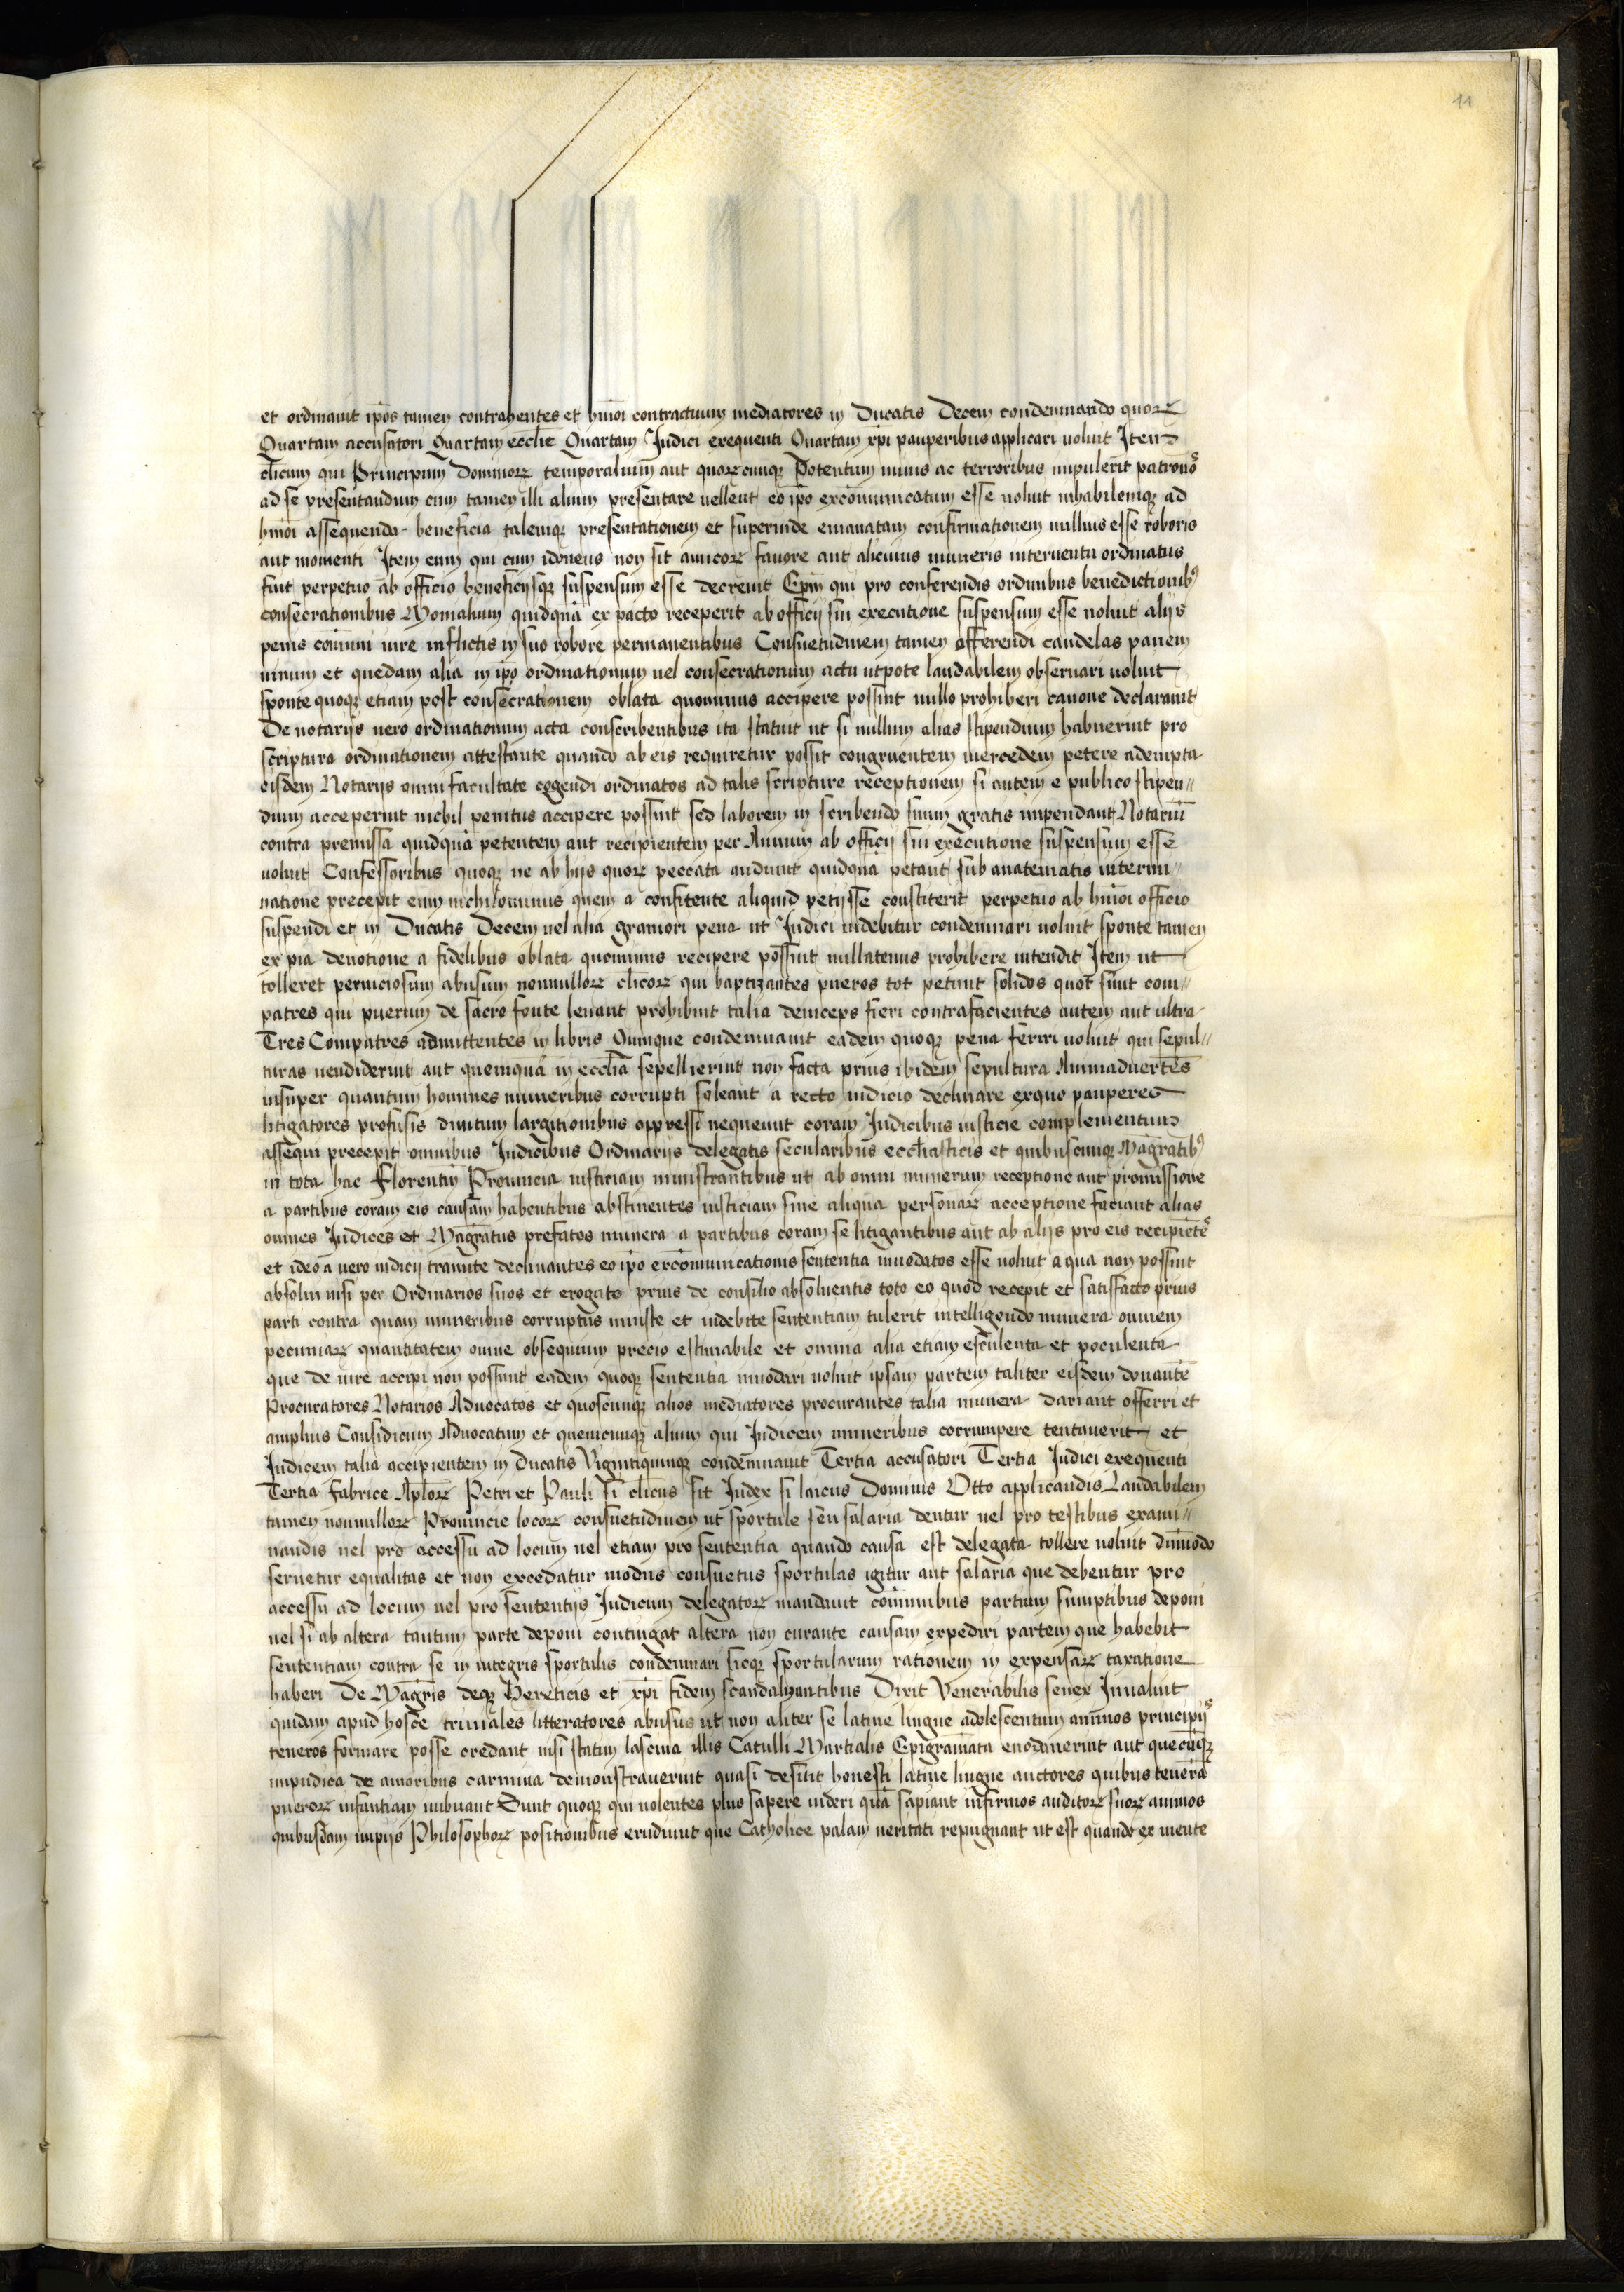 11
et ordinauit ipõs tamen contrahentes et hmõi contractuum mediatores in Ducatis Decem condemnando quoꝝ
Quartam accusatori Quartam eccliẽ Quartam Iudici exequenti Quartam xp̃i pauperibus applicari uoluit Item
cl̃icum qui Principum Dominoꝝ temporalium aut quoꝝcunqꝫ Potentum minis ac terroribus impulerit patronos
ad se presentandum cum tamen illi alium presentare uellent eo ip̃o excõmunicatum esse uoluit inhabilemqꝫ ad
hmõi assequenda beneficia talemqꝫ presentationem et superinde emanatam confirmationem nullius esse roboris
aut momenti Item eum qui cum idoneus non sit amicoꝝ fauore aut alicuius muneris interuentu ordinatus
fuit perpetuo ab officio beneficijsqꝫ suspensum esse decreuit Ep̃m qui pro conferendis ordinibus benedictionibꝰ
consecrationibus Monialium quidquã ex pacto receperit ab officij sui executione suspensum esse uoluit alijs
penis cõmuni iure inflictis in suo robore permanentibus Consuetudinem tamen offerendi candelas panem
uinum et quedam alia in ip̃o ordinationum uel consecrationum actu utpote laudabilem obseruari uoluit
sponte quoqꝫ etiam post consecrationem oblata quominus accipere possint nullo prohiberi canone declarauit
De notarijs uero ordinationum acta conscribentibus ita statuit ut si nullum alias stipendium habuerint pro
scriptura ordinationem attestante quando ab eis requiretur possit congruentem mercedem petere adempta
eisdem Notarijs omni facultate cogendi ordinatos ad talis scripture receptionem si autem e publico stipen//
dium acceperint nichil penitus accipere possint sed laborem in scribendo suum gratis impendant Notariũ
contra premissa quidquã petentem aut recipientem per Annum ab officij sui executione suspensum esse
uoluit Confessoribus quoqꝫ ne ab hijs quoꝝ peccata audiunt quidquã petant sub anatematis intermi//
natione precepit eum nichilominus quem a confitente aliquid petijsse constiterit perpetuo ab hmõi officio
suspendi et in Ducatis Decem uel alia grauiori pena ut Iudici uidebitur condemnari uoluit sponte tamen
ex pia deuotione a fidelibus oblata quominus recipere possint nullatenus prohibere intendit Item ut
tolleret perniciosum abusum nonnulloꝝ cl̃icoꝝ qui baptizantes pueros tot petunt solidos quot sunt com//
patres qui puerum de sacro fonte leuant prohibuit talia deinceps fieri contrafacientes autem aut ultra
Tres Compatres admittentes in libris Quinque condemnauit eadem quoqꝫ pena feriri uoluit qui sepul//
turas uendiderint aut quemquã in ecclĩa sepellierint non facta prius ibidem sepultura Animaduertẽs
insuper quantum homines muneribus corrupti soleant a recto iudicio declinare exquo pauperes
litigatores profusis diuitum largitionibus oppressi nequeunt coram Iudicibus iusticie complementum
assequi precepit omnibus Iudicibus Ordinarijs delegatis secularibus eccl̃iasticis et quibuscunqꝫ Magr̃atibꝰ
in tota hac Florentin̄ Prouincia iusticiam ministrantibus ut ab omni munerum receptione aut promissione
a partibus coram eis causam habentibus abstinentes iusticiam sine aliqua personaꝝ acceptione faciant alias
omnes Iudices et Magr̃atus prefatos munera a partibus coram se litigantibus aut ab alijs pro eis recipiẽtes
et ideo a uero iudicij tramite declinantes eo ip̃o excõmunicationis sententia innodatos esse uoluit a qua non possint
absolui nisi per Ordinarios suos et erogato prius de consilio absoluentis toto eo quod recepit et satisfacto prius
parti contra quam muneribus corruptus iniuste et indebite sententiam tulerit intelligendo munera omnem
pecuniaꝝ quantitatem omne obsequium precio estimabile et omnia alia etiam esculenta et poculenta
que de iure accipi non possunt eadem quoqꝫ sententia innodari uoluit ipsam partem taliter eisdem donantẽ
Procuratores Notarios Aduocatos et quoscunqꝫ alios mediatores procurantes talia munera dari aut offerri et
amplius Causidicum Aduocatum et quemcunqꝫ alium qui Iudicem muneribus corrumpere tentauerit et
Iudicem talia accipientem in Ducatis Vigintiquinqꝫ condẽmnauit Tertia accusatori Tertia Iudici exequenti
Tertia fabrice Apl̃oꝝ Petri et Pauli si cl̃icus sit Iudex si laicus Domnus Otto applicandis Laudabilem
tamen nonnulloꝝ Prouincie locoꝝ consuetudinem ut sportule seu salaria dentur uel pro testibus exami//
nandis uel pro accessu ad locum uel etiam pro sententia quando causa est delegata tollere noluit dũmodo
seruetur equalitas et non excedatur modus consuetus sportulas igitur aut salaria que debentur pro
accessu ad locum uel pro sententijs Iudicum delegatoꝝ mandauit cõmunibus partium sumptibus deponi
uel si ab altera tantum parte deponi contingat altera non curante causam expediri partem que habebit
sententiam contra se in integris sportulis condemnari sicqꝫ sportularum rationem in expensaꝝ taxatione
haberi De Magr̃is deqꝫ Hereticis et xp̃i fidem scandalizantibus Dixit Venerabilis senex Inualuit
quidam apud hosce triuiales litteratores abusus ut non aliter se latine lingue adolescentum animos principijs
teneros formare posse credant nisi statim lasciua illis Catulli Martialis Epigramata enodauerint aut quecũqꝫ
impudica de amoribus carmina demonstrauerint quasi desint honesti latine lingue auctores quibus tenerã
pueroꝝ infantiam imbuant Sunt quoqꝫ qui uolentes plus sapere uideri quã sapiant infirmos auditoꝝ suoꝝ animos
quibusdam impijs Philosophoꝝ positionibus erudiunt que Catholice palam ueritati repugnant ut est quando ex mente